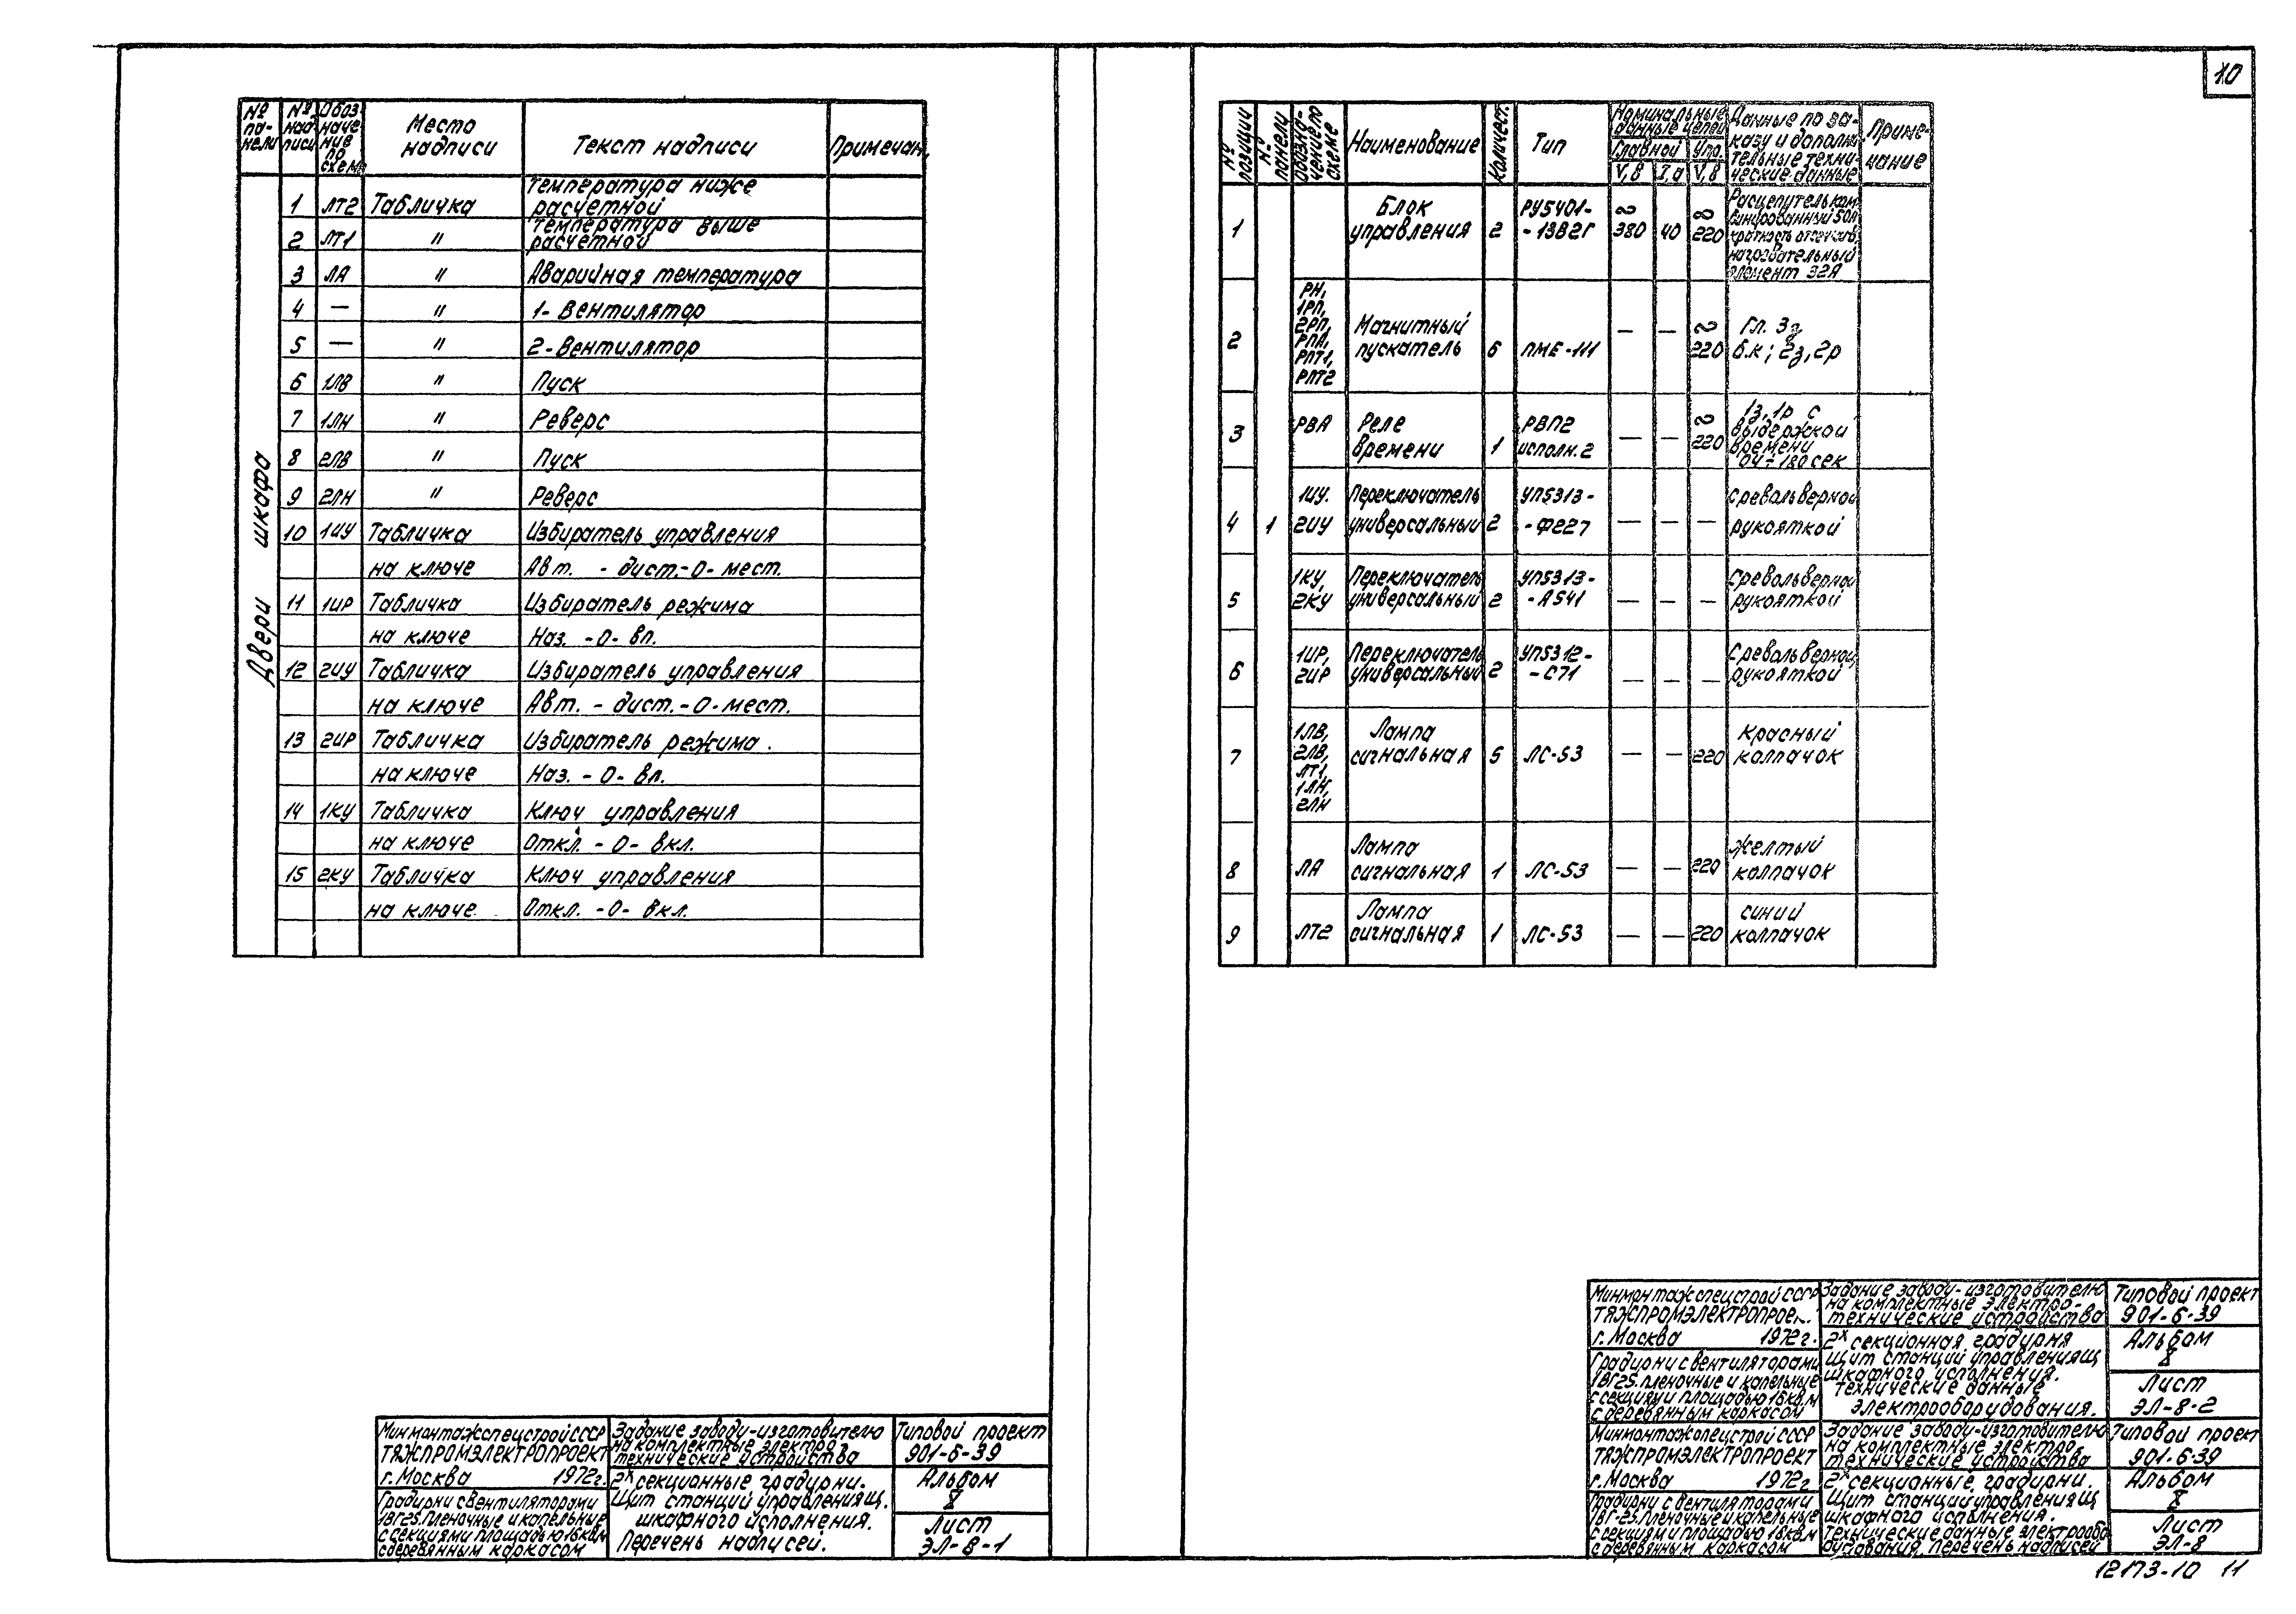 10
№ па- нели
№ над писи
Обоз наче ние по схеме
Место надписи
Текст надписи
Примечан.
Двери шкафа
1 ЛТ2 Табличка температура ниже расчетной
2 ЛТ1 " температура выше расчетной
3 ЛА " Аварийная температура
4 — " 1- Вентилятор
5 — " 2- Вентилятор
6 1ЛВ " Пуск
7 1ЛН " Реверс
8 2ЛВ " Пуск
9 2ЛН " Реверс
10 1ИУ Табличка Избиратель управления
на ключе Авт. - дист.-О- мест.
11 1ИР Табличка Избиратель режима
на ключе Наз. -О- вп.
12 2ИУ Табличка Избиратель управления
на ключе Авт. - дист.-О-мест.
13 2ИР Табличка Избиратель режима.
на ключе Наз. -О- вп.
14 1КУ Табличка Ключ управления
на ключе Откл. -О- вкл.
15 2КУ Табличка Ключ управления
на ключе Откл. -О- вкл.
Минмонтажспецстрой СССР
ТЯЖПРОМЭЛЕКТРОПРОЕКТ
г. Москва 1972г.
Градирни с вентиляторами
1ВГ25. Пленочные и капельные
с секциями площадью 16кв.м
с деревянным каркасом
Задание заводу-изготовителю
на комплектные электро
технические устройства
2х секционные градирни.
Щит станций управления щ.
шкафного исполнения.
Перечень надписей.
Типовой проект
901-6-39
Альбом
X
Лист
ЭЛ-8-1
№ позиции
№ панели
Обозна- чение по схеме
Наименование
Количест.
Тип
Номинальные данные цепей
Главной Упр.
V, В I, а V, В
Данные по за- казу и дополни тельные техни- ческие данные
Приме- чание
1 Блок управления 2 РУ5401- -13В2Г ~ 380 40 ~ 220 Расцепитель ком бинированный 50А кратность отсечки нагревательный элемент 32А
2 РН, 1РП, 2РП, РПА, РПТ1, РПТ2 Магнитный пускатель 6 ПМЕ-111 — — ~ 220 Гл. 3з б.к; 2з, 2р
3 РВА Реле времени 1 РВП2 исполн. 2 — — ~ 220 1з, 1р с выдержкой времени 0,4÷180 сек
4 1 1ИУ. 2ИУ Переключатель универсальный 2 УП5313- -Ф227 — — — с револьверной рукояткой
5 1КУ, 2КУ Переключатель универсальный 2 УП5313- -А541 — — — с револьверной рукояткой
6 1ИР, 2ИР Переключатель универсальный 2 УП5312- -С71 — — — с револьверной рукояткой
7 1ЛВ, 2ЛВ, ЛТ1, 1ЛН, 2ЛН Лампа сигнальная 5 ЛС-53 — — 220 Красный колпачок
8 ЛА Лампа сигнальная 1 ЛС-53 — — 220 Желтый колпачок
9 ЛТ2 Лампа сигнальная 1 ЛС-53 — — 220 синий колпачок
Минмонтажспецстрой СССР
ТЯЖПРОМЭЛЕКТРОПРОЕК.
г. Москва 1972г.
Градирни с вентиляторами
1ВГ25. пленочные и капельные
с секциями площадью 16кв.м
с деревянным каркасом
Задание заводу-изготовителю
на комплектные электро-
технические устройства
2х секционная градирня
Щит станций управления щ
шкафного исполнения.
Технические данные
электрооборудования.
Типовой проект
901-6-39
Альбом
X
Лист
ЭЛ-8-2
Минмонтажспецстрой СССР
ТЯЖПРОМЭЛЕКТРОПРОЕКТ
г. Москва 1972г
Градирни с вентиляторами
1ВГ-25. Пленочные и капельные
с секциями площадью 16кв.м
с деревянным каркасом
Задание заводу-изготовителю
на комплектные электро
технические устройства
2х секционные градирни.
Щит станций управления щ
шкафного исполнения.
Технические данные электрообо
рудования, перечень надписей
Типовой проект
901-6-39
Альбом
X
Лист
ЭЛ-8
12173-10 11